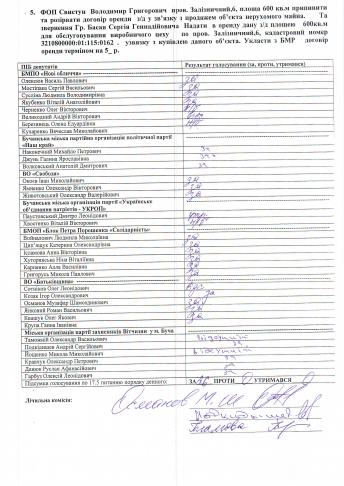 5. ФОП Свистун Володимир Григорович пров. Залізничний,6, площа 600 кв.м припинити
та розірвати договір оренди з/д у зв'язку з продажем об'єкта нерухомого майна. Та
звернення Гр. Басик Сергія Геннадійовича Надати в оренду дану з/д площею 600кв.м
для обслуговування виробничого цеху по пров. Залізничний,6, кадастровий номер
3210800000:01:115:0162 . узвязку з купівлею даного об'єкта. Укласти з БМР договір
оренди терміном на 5_ р.
ПІБ депутата Результат голосування (за, проти, утримався)
БМПО «Нові обличчя»
Олексюк Василь Павлович за
Мостіпака Сергій Васильович за
Суслова Людмила Володимирівна за
Якубенко Віталій Анатолійович за
Черненко Олег Вікторович
Великодний Андрій Вікторович
Березовець Олена Едуардівна
Кухаренко Вячеслав Михайлович
Бучанська міська партійна організація політичної партії
«Наш край»
Наконечний Михайло Петрович за
Джунь Галина Ярославівна за
Волковський Анатолій Дмитрович за
ВО «Свобода»
Оксюк Іван Миколайович за
Яненко Олександр Вікторович за
Животовський Олександр Валерійович за
Бучанська міська організація партії «Українське
об'єднання патріотів - УКРОП»
Паустовський Дмитро Леонідович
Хвостенко Віталій Вікторович
БМОП «Блок Петра Порошенка «Солідарність»
Войналович Людмила Миколаївна за
Цих'мацук Катерина Олександрівна за
Ісламова Анна Вікторівна за
Кухорявська Ніна Віталіївна за
Карпенко Алла Василівна за
Григорчук Микола Павлович за
ВО «Батьківщина»
Ситніков Олег Леонідович
Козак Ігор Олександрович за
Османов Музафар Шамситдинович за
Янковий Роман Васильович за
Кващук Олег Янович за
Крупа Ганна Іванівна
Міська організація партії захисників Вітчизни у м. Буча
Таможній Олександр Васильович відсутній
Подкідишев Андрій Сергійович за
Йощенко Микола Миколайович відсутній
Кравчук Олександр Петрович
Данюк Руслан Афанасійович за
Гарбуз Олексій Леонідович
Підсумки голосування по 17.5 питанню порядку денного: ЗА 26 ПРОТИ 0 УТРИМАВСЯ
Лічильна комісія: Османов М. Ш
Подкідишев
Ісламова